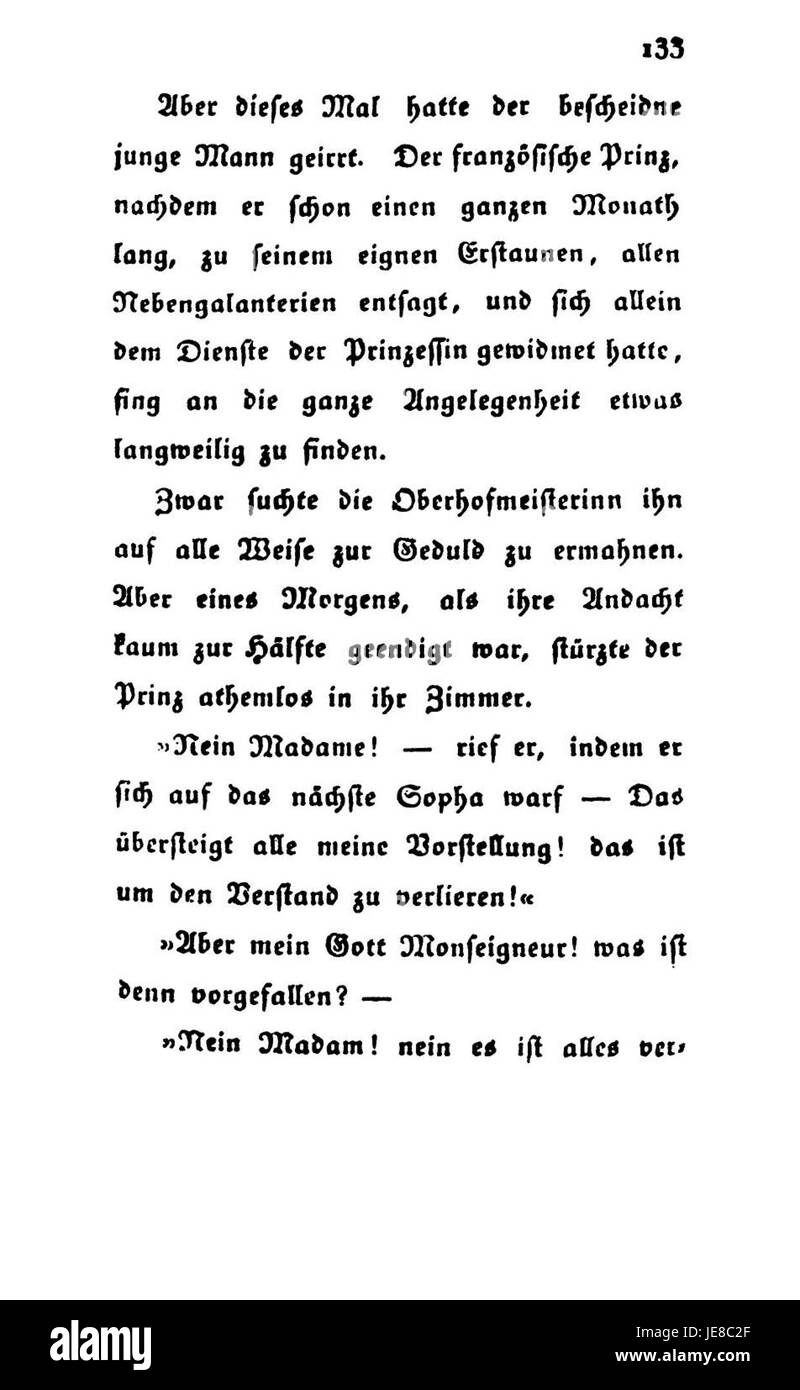 133
Aber dieſes Mal hatte der beſcheidne
junge Mann geirrt. Der franzöſiſche Prinz,
nachdem er ſchon einen ganzen Monath
lang, zu ſeinem eignen Erſtaunen, allen
Nebengalanterien entſagt, und ſich allein
dem Dienſte der Prinzeſſin gewidmet hatte,
fing an die ganze Angelegenheit etwas
langweilig zu finden.
Zwar ſuchte die Oberhofmeiſterinn ihn
auf alle Weiſe zur Geduld zu ermahnen.
Aber eines Morgens, als ihre Andacht
kaum zur Hälfte geendigt war, ſtürzte der
Prinz athemlos in ihr Zimmer.
»Nein Madame! — rief er, indem er
ſich auf das nächſte Sopha warf — Das
überſteigt alle meine Vorſtellung! das iſt
um den Verſtand zu verlieren!«
»Aber mein Gott Monſeigneur! was iſt
denn vorgefallen? —
»Nein Madam! nein es iſt alles ver⸗
alamy stock photo
JE8C2F
www.alamy.com